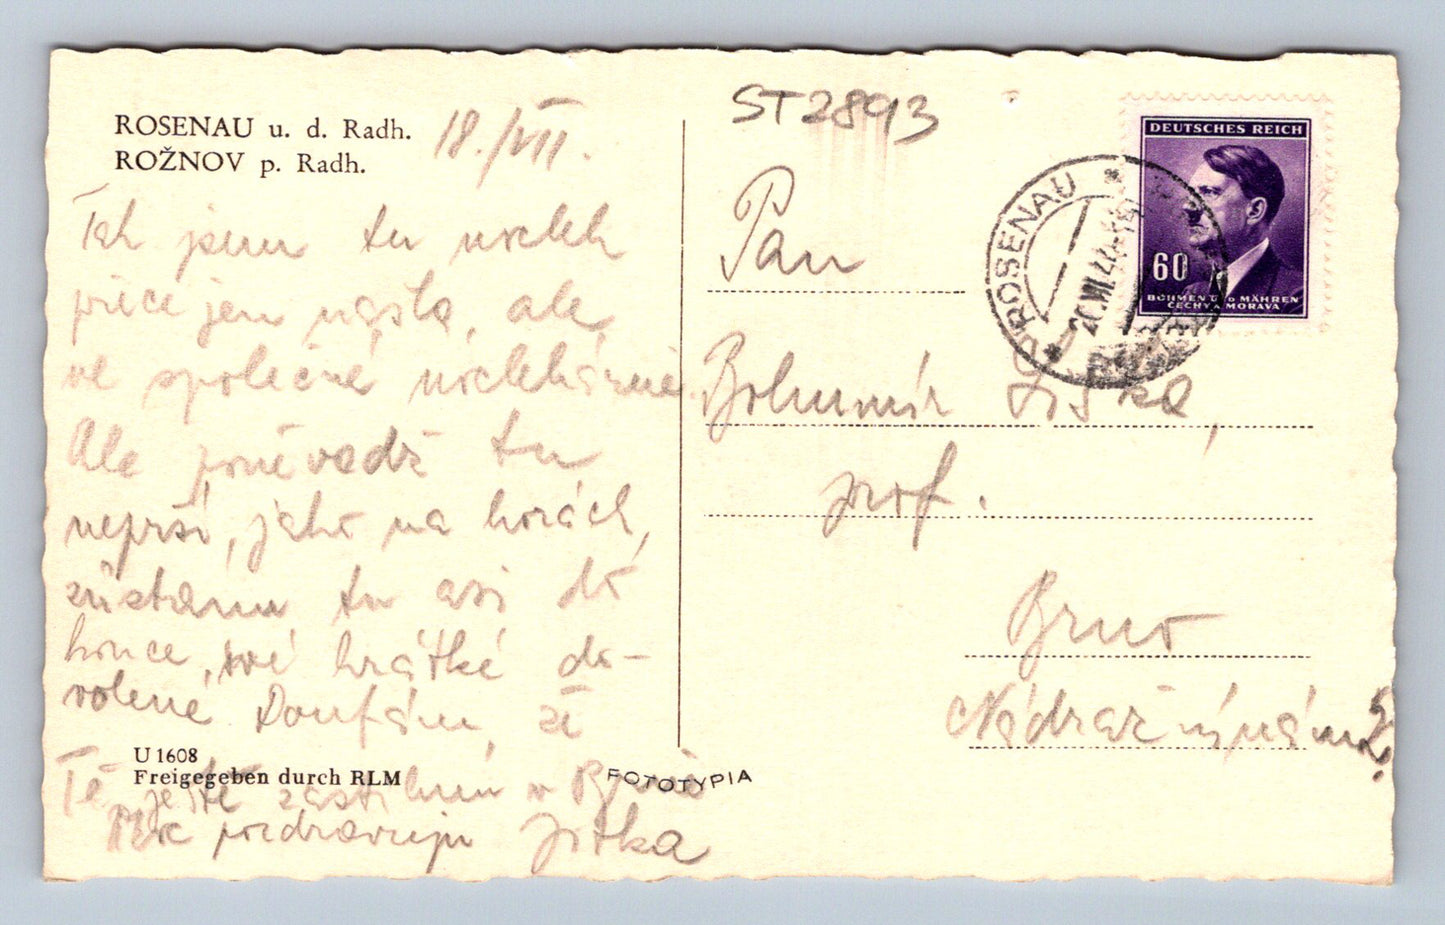 ROSENAU u. d. Radh.
ROŽNOV p. Radh.
18./VII.
Tak jsem tu
přece jen našla, ale
ve společné
Ale poněvadž tu
neprší, jako na horách,
zůstanu tu asi do
konce své krátké do-
volené. Doufám, že
Tě ještě zastihnu v Brně
pozdravuje Jitka
U 1608
Freigegeben durch RLM
FOTOTYPIA
ST2893
DEUTSCHES REICH
60
BÖHMEN U D MÄHREN
ČECHY A MORAVA
ROSENAU
20.VII.44
Pan
Bohumír Liška,
prof.
Brno
Nádražní nám 2.